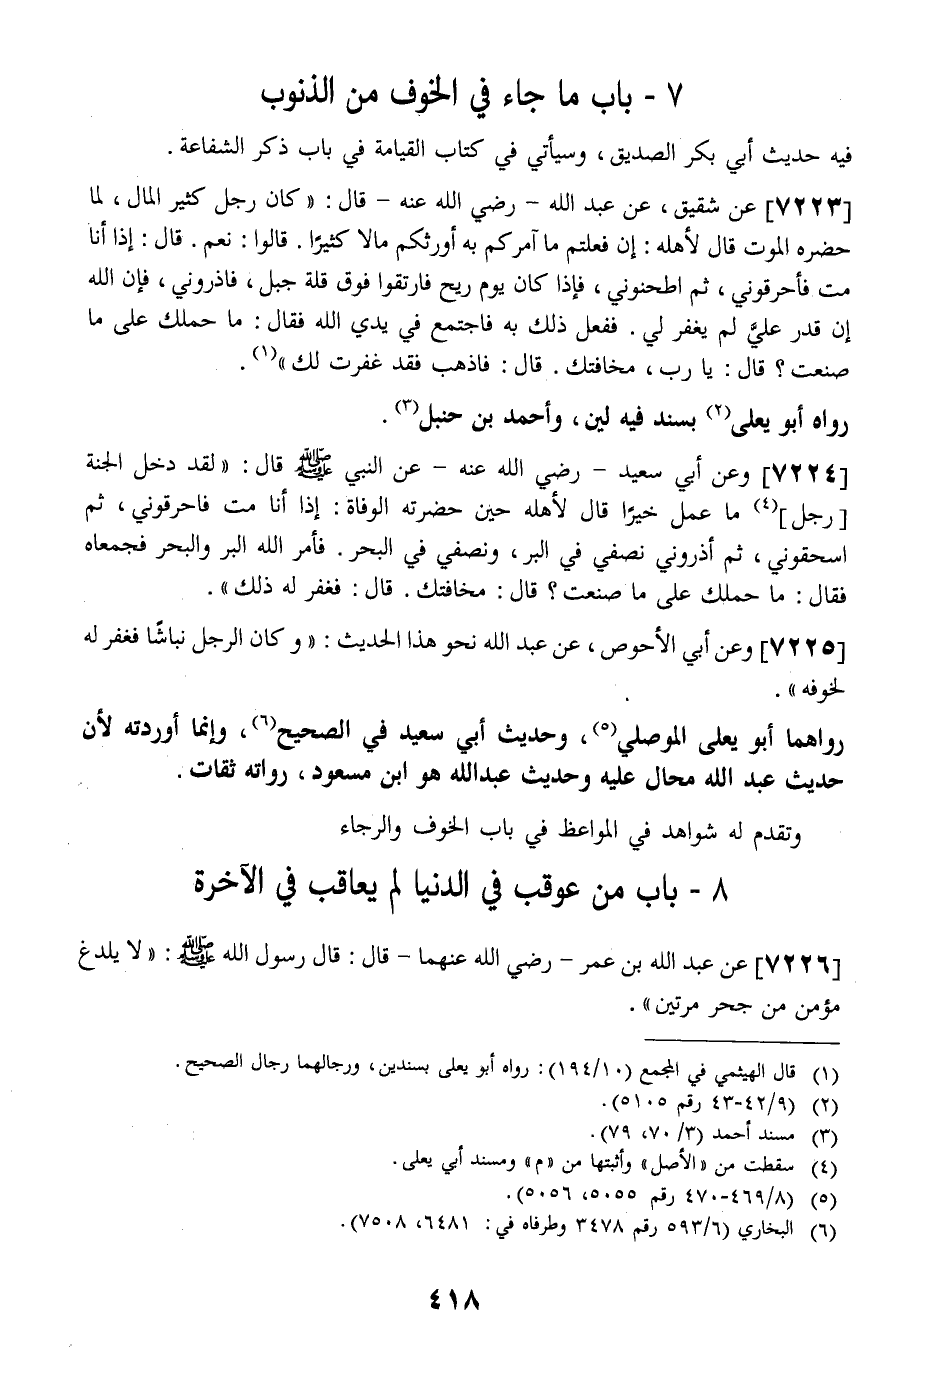 ٧ - باب ما جاء في الخوف من الذنوب
فيه حديث أبي بكر الصديق ، وسيأتي في كتاب القيامة في باب ذكر الشفاعة .
[٧٢٢٣] عن شقيق ، عن عبد الله - رضي الله عنه - قال : « كان رجل كثير المال ، لما
حضره الموت قال لأهله : إن فعلتم ما آمركم به أورثكم مالا كثيرًا . قالوا : نعم . قال : إذا أنا
مت فأحرقوني ، ثم اطحنوني ، فإذا كان يوم ريح فارتقوا فوق قلة جبل ، فاذروني ، فإن الله
إن قدر عليَّ لم يغفر لي . ففعل ذلك به فاجتمع في يدي الله فقال : ما حملك على ما
صنعت ؟ قال : يا رب ، مخافتك . قال : فاذهب فقد غفرت لك »(١) .
رواه أبو يعلى(٢) بسند فيه لين ، وأحمد بن حنبل(٣) .
[٧٢٢٤] وعن أبي سعيد - رضي الله عنه - عن النبي ﷺ قال : « لقد دخل الجنة
[رجل](٤) ما عمل خيرًا قال لأهله حين حضرته الوفاة : إذا أنا مت فاحرقوني ، ثم
اسحقوني ، ثم أذروني نصفي في البر ، ونصفي في البحر . فأمر الله البر والبحر فجمعاه
فقال : ما حملك على ما صنعت ؟ قال : مخافتك . قال : فغفر له ذلك » .
[٧٢٢٥] وعن أبي الأحوص ، عن عبد الله نحو هذا الحديث : « و كان الرجل نباشًا فغفر له
لخوفه » .
رواهما أبو يعلى الموصلي(٥) ، وحديث أبي سعيد في الصحيح(٦) ، وإنما أوردته لأن
حديث عبد الله محال عليه وحديث عبدالله هو ابن مسعود ، رواته ثقات .
وتقدم له شواهد في المواعظ في باب الخوف والرجاء
٨ - باب من عوقب في الدنيا لم يعاقب في الآخرة
[٧٢٢٦] عن عبد الله بن عمر - رضي الله عنهما - قال : قال رسول الله ﷺ : « لا يلدغ
مؤمن من جحر مرتين » .
(١) قال الهيثمي في المجمع (١٩٤/١٠) : رواه أبو يعلى بسندين ، ورجالهما رجال الصحيح .
(٢) (٤٢/٩-٤٣ رقم ٥١٠٥).
(٣) مسند أحمد (٣/ ٧٠، ٧٩).
(٤) سقطت من «الأصل» وأثبتها من «م» ومسند أبي يعلى .
(٥) (٤٦٩/٨-٤٧٠ رقم ٥٠٥٥، ٥٠٥٦).
(٦) البخاري (٥٩٣/٦ رقم ٣٤٧٨ وطرفاه في : ٦٤٨١، ٧٥٠٨).
٤١٨